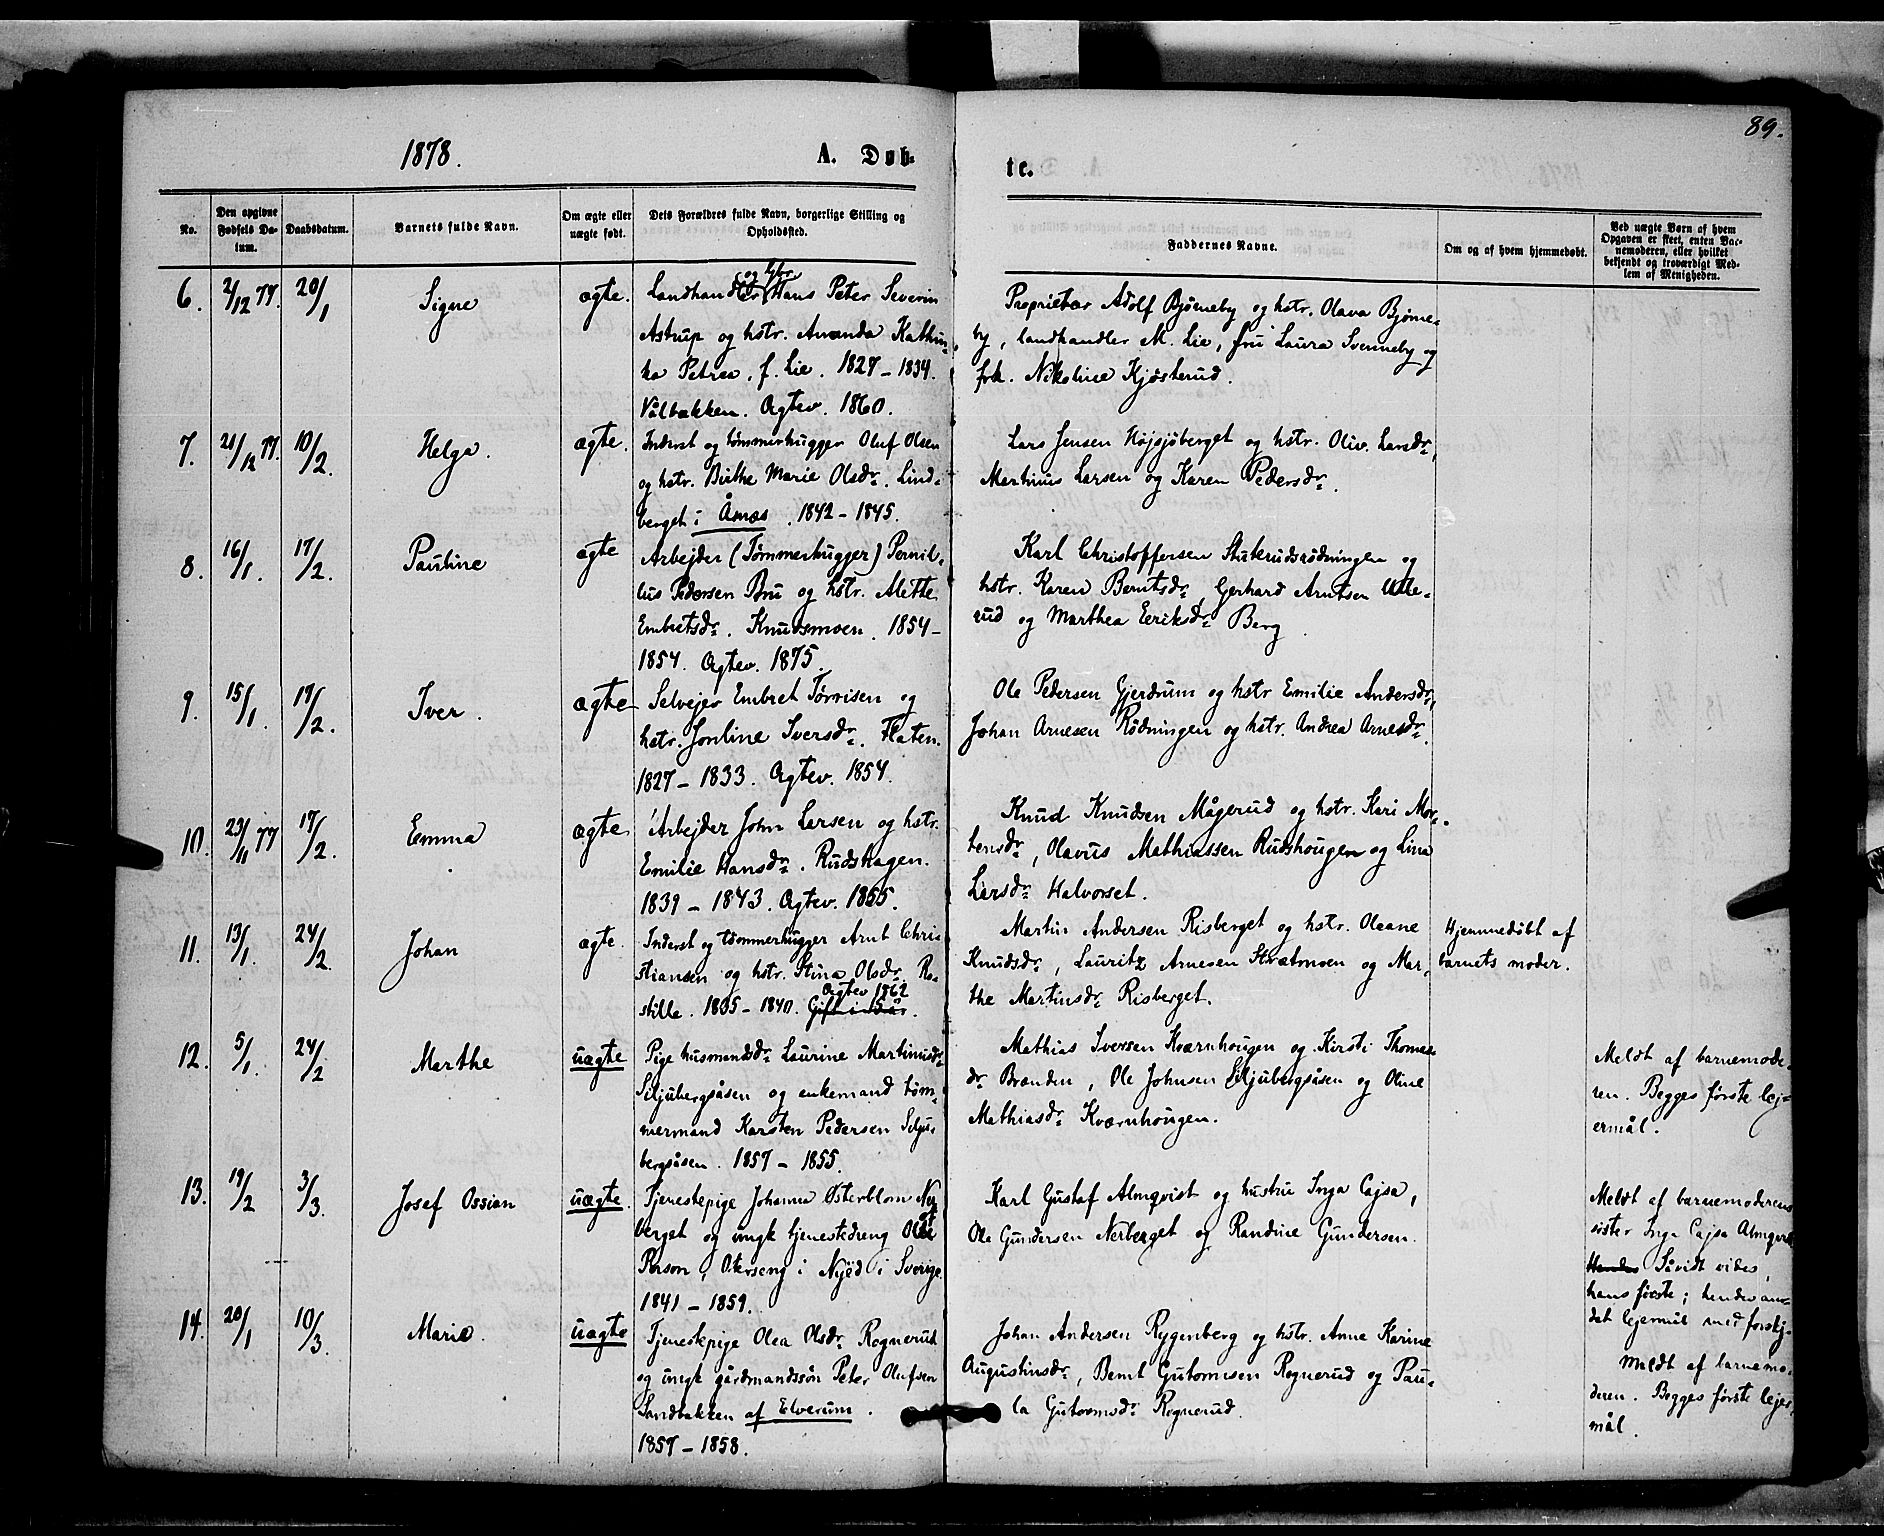 89.
1878.
A. Døb-
te.
No.
Den opgivne
Fødsels Da-
tum.
Daabsdatum.
Barnets fulde Navn.
Om ægte eller
uægte født.
Dets Forældres fulde Navn, borgerlige Stilling og
Opholdssted.
Faddernes Navne.
Om og af hvem hjemmedøbt.
Ved uægte Børn af hvem
Opgaven er skeet, enten Bar-
nemoderen, eller hvilket
bekjendt og troværdigt Med-
lem af Menigheden.
6. 2/12 77. 20/1 Signe ægte.
og lgbr.
Landhandler Hans Peter Severin
Astrup og hstr. Amanda Kathin-
ka Petrea, f. Lie. 1827 - 1834.
Vålbakken. Ægtev. 1860.
Proprietær Adolf Bjørneby og hstr. Olava Bjørne-
by, landhandler M. Lie, fru Laura Svenneby og
frk. Nikoline Kjøsterud.
7. 21/12 77. 10/2. Helga. ægte.
Inderst og tømmerhugger Oluf Olsen
og hstr. Birthe Marie Olsdr. Lind-
berget i Åsnæs. 1842 - 1845.
Lars Jensen Højsjøberget og hstr. Oliv. Larsdr,
Martinius Larsen og Karen Pedersdr.
8. 16/1. 17/2. Pauline ægte
Arbejder (Tømmerhugger) Pernil-
lus Pedersen Bru og hstr. Alette
Embretsdr. Knudsmoen. 1854 -
1854. Ægtev. 1875.
Karl Christoffersen Stuterudsrødningen og
hstr. Karen Berntsdr, Gerhard Arntsen Ulle-
rud og Marthea Eeriksdr Berg.
9. 15/1. 17/2. Iver. ægte
Selvejer Embret Tørrisen og
hstr. Jonline Iversdr. Flaten.
1827 - 1833. Ægtev. 1854.
Ole Pedersen Gjerdrum og hstr Emilie Andersdr,
Johan Arnesen Rødningen og hstr. Andrea Arnesdr.
10. 23/11 77 17/2. Emma ægte
Arbejder John Larsen og hstr.
Emilie Hansdr. Rudshagen.
1839 - 1843. Ægtev. 1855.
Knud Knudsen Mågerud og hstr. Kari Mor-
tensdr, Olavus Mathiassen Rudshougen og Lina
Larsdr Halvorset.
11. 13/1. 24/2. Johan ægte.
Inderst og tømmerhugger Arnt Chri-
stiansen og hstr. Stina Olsdr. Ro-
Ægtev 1862
stille. 1835 - 1840. Gift i 15 år.
Martin Andersen Risberget og hstr. Oleane
Knudsdr, Lauritz Arnesen Strætmoen og Mar-
the Martinsdr Risberget.
Hjemmedøbt af
barnets moder.
12. 5/1. 24/2 Marthe uægte
Pige husmandsdr Laurine Martinusdr
Siljubergsåsen og enkemand tøm-
mermand Karsten Pedersen Silju-
bergsåsen. 1857 - 1855.
Mathias Iversen Kværnhougen og Kirsti Thomas-
dr Brænden, Ole Johnsen Siljubergsåsen og Oline
Mathiasdr Kværnhougen.
Meldt af barnemode-
ren. Begges første lej-
ermål.
13. 19/2 3/3. Josef Ossian uægte.
Tjenestepige Johanna Østerblom Ner-
berget og ungk tjenestedreng Olof
Person, Oterseng i Nyed i Sverige.
1841 - 1859.
Karl Gustaf Almqvist og hustru Inga Cajsa,
Ole Gundersen Nerberget og Randine Gundersen.
Meldt af barnemoderens
sister Inga Cajsa Almqvist
Hendes Såvidt vides,
hans første; hendes an-
det lejermål med forskj.
14. 20/1 10/3. Marie. uægte
Tjenestepige Olea Olsdr Rognerud
og ungk gårdmandssøn Peter Olufsen
Sandbakken af Elverum.
1857 - 1858.
Johan Andersen Rygenberg og hstr. Anne Karine
Augustinsdr, Bernt Gutormsen Rognerud og Pau-
la Gutormsdr Rognerud.
Meldt af barnemo-
deren. Begges første lejer-
mål.